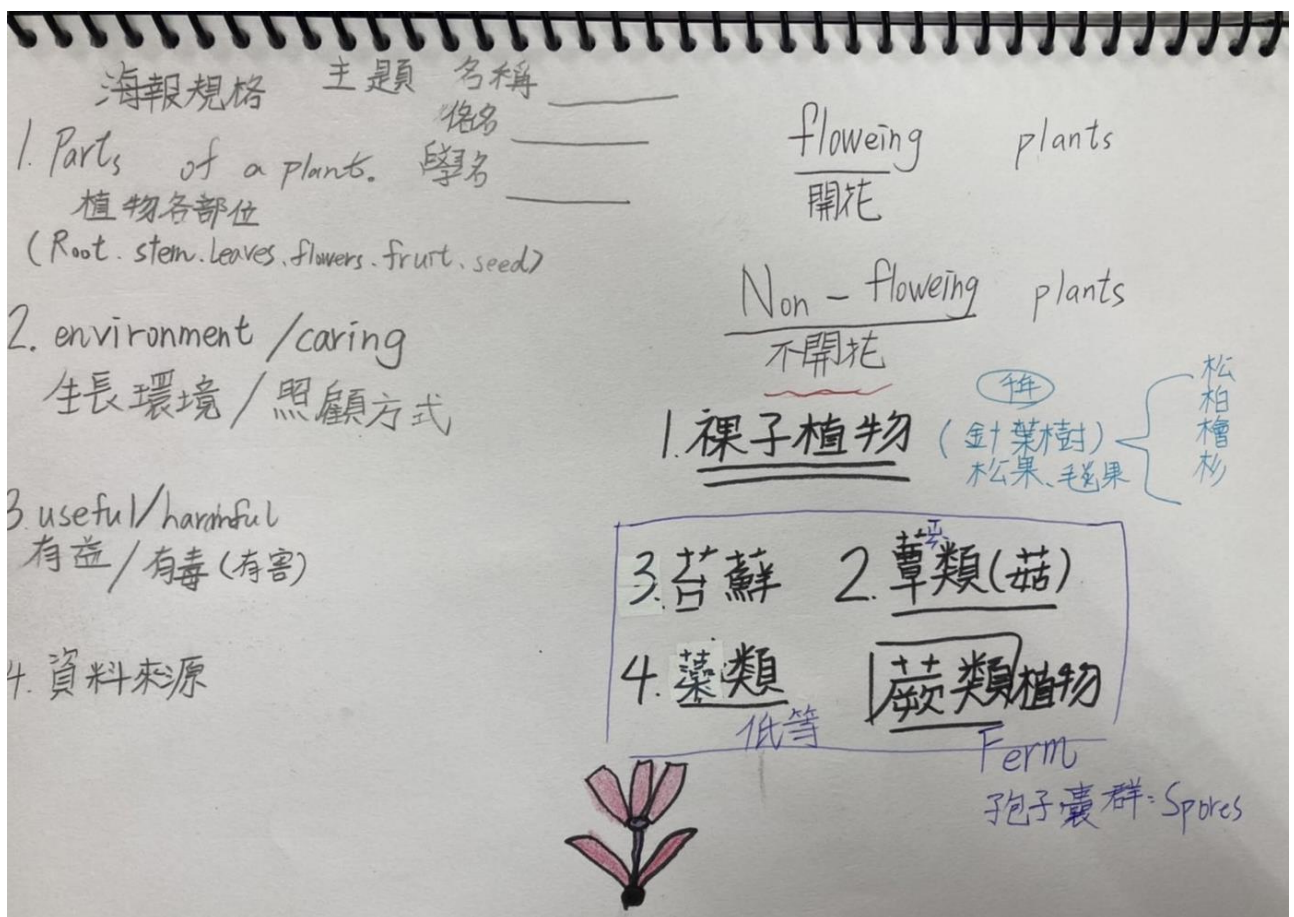 海報規格 主題 名稱
俗名
學名
1. Parts of a plant.
植物各部位
(Root. stem. leaves. flowers. fruit. seed)
2. environment /caring
生長環境/照顧方式
3. useful/harmful
有益/有毒(有害)
4. 資料來源
floweing plants
開花
Non-floweing plants
不開花
1. 裸子植物 (針葉樹)
松果、毬果
松
柏
檜
杉
3. 苔蘚 2. 蕈類(菇)
4. 藻類 蕨類植物
低等
Ferm
孢子囊群: Spores